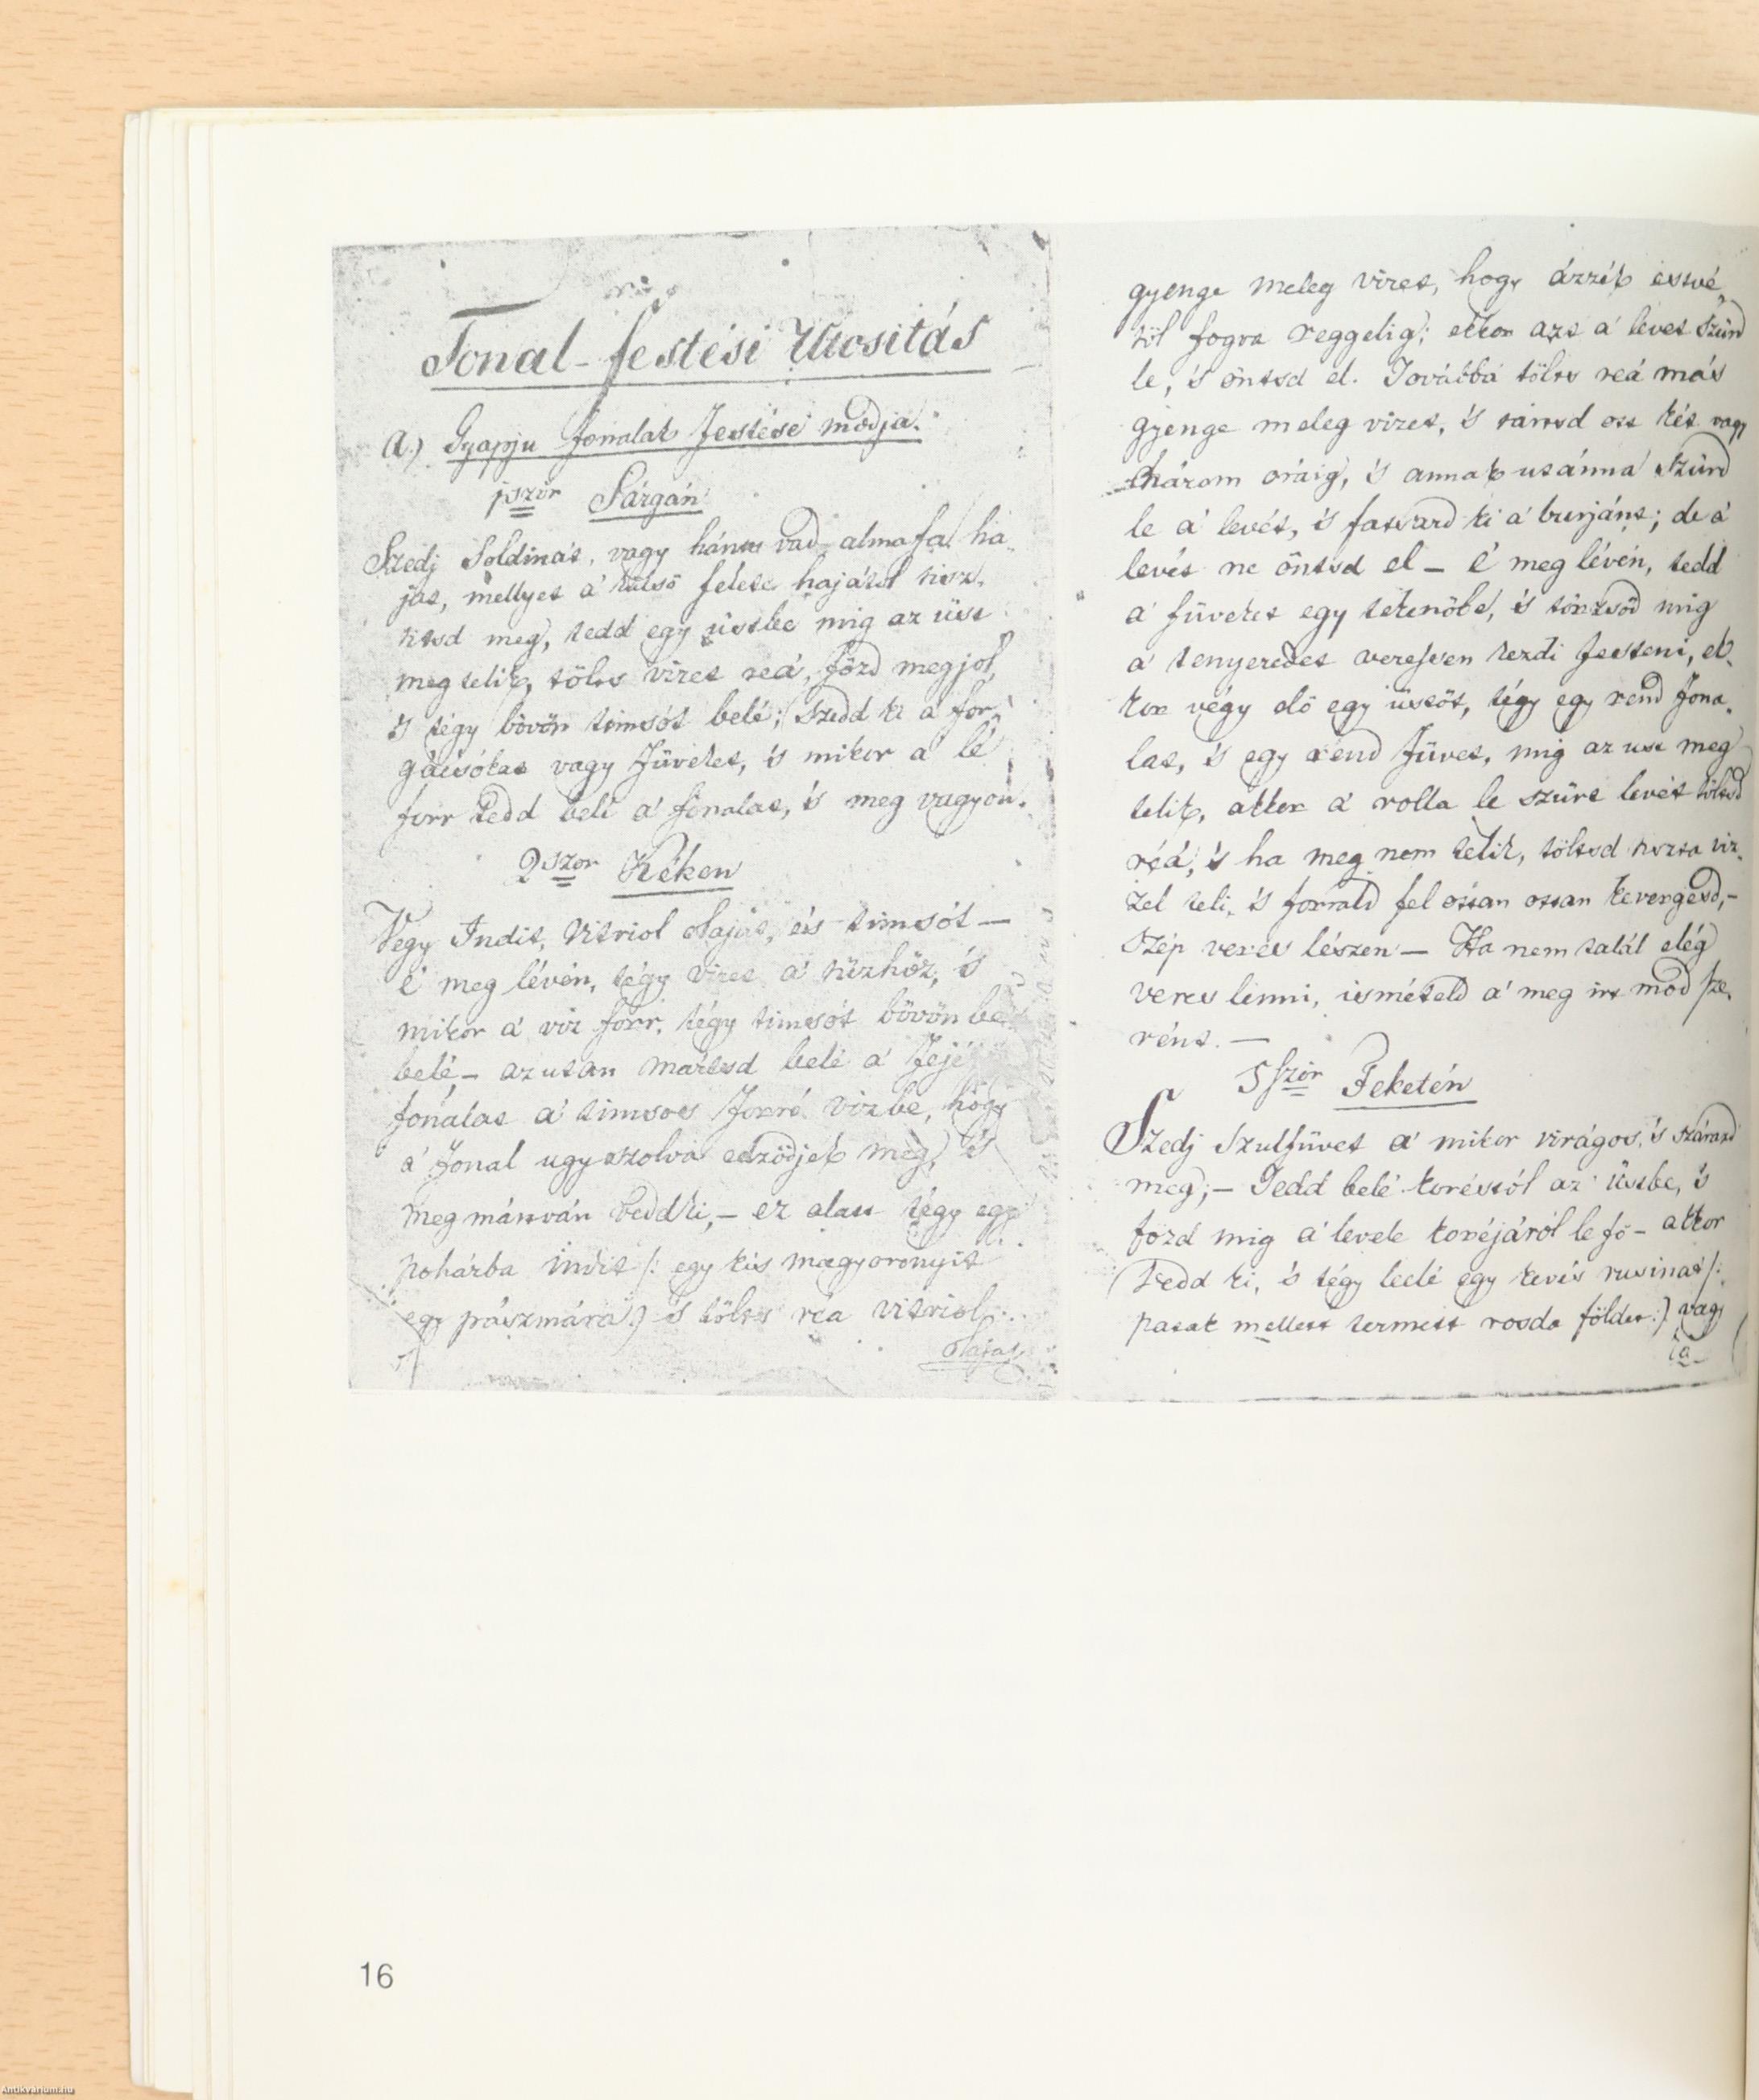 Fonal-festési Utositás
A.) Gyapju fonalak festése módja.
1ször Sárgán
Szedj Soldinát, vagy hánts vad almafa ha-
jat, mellyet a' külső felete hajától tisz-
titsd meg, tedd egy üstbe mig az üst
meg telik, tölts vizet reá, főzd meg jol,
's tégy bövön timsót belé; szedd ki a' for-
gátsokat vagy füveket, 's mikor a' lé
forr tedd belé a' fonalat, 's meg vagyon.
2szor Kéken
Végy Indit, Vitriol olaját, és timsót —
é meg lévén, tégy vizet a' tüzhöz, 's
mikor a' viz forr, tégy timsót bövön be
belé — azutan mártsd belé a' fejé
fonalat a' timsos forró vizbe, hogy
a' fonal ugy szolva edződjek meg, 's
meg mártván vedd ki, — ez alatt tégy egy
pohárba indit /: egy kis magyoronyit
egy pászmára :) 's tölts réa vitriol
olajat
gyenge meleg vizet, hogy ázzék estvé-
től fogva reggelig; ekkor azt a' levet szürd
le, 's öntsd el. Továbbá tölts reá más
gyenge meleg vizet, 's tartsd ott két vagy
három oráig, 's annak utánna szürd
le a' levét, 's fatsard ki a' burjánt; de a'
levét ne öntsd el — é meg lévén, tedd
a' füveket egy tekenőbe, 's törzsöd mig
a' tenyeredet veressen kezdi festeni, ek-
kor végy elő egy üstöt, tégy egy rend fona-
lat, 's egy rend füvet, mig az ust meg
telik, akkor a' rolla le szürt levét töltsd
réá, 's ha meg nem telik, töltsd hozza viz-
zel teli, 's forrald fel ottan ottan kevergesd, —
szép veres lészen — Ha nem talál elég
veres lenni, ismételd a' meg irt mód sze-
rént. —
5ször Feketén
Szedj Szulfüvet a' mikor virágos, 's száraszd
meg; — Tedd belé koréstól az üstbe, 's
főzd mig a' levele koréjáról le fő — akkor
vedd ki, 's tégy belé egy kevés rusinát /:
patak mellett termett rosda földet :) vagy
ta
16
Antikvarium.hu